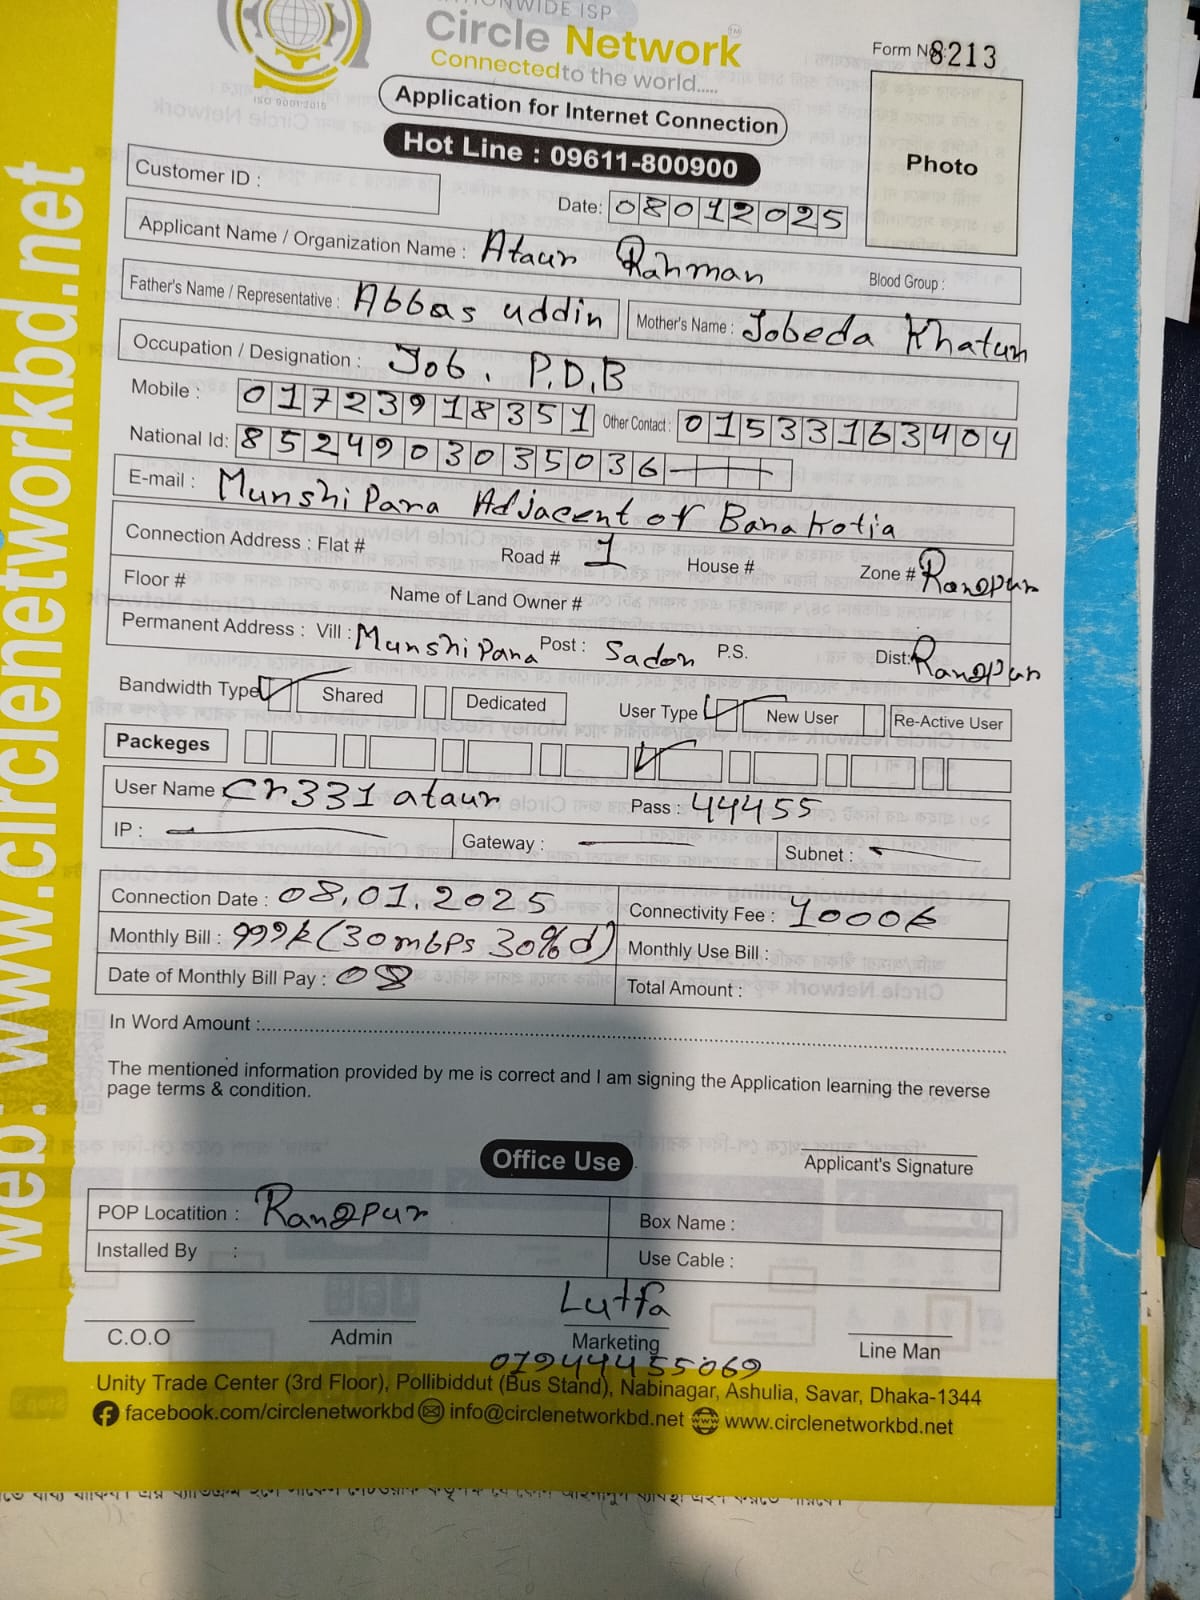 NATIONWIDE ISP
Circle Network™
Connected to the world.....
ISO 9001:2015
Form No 8213
Application for Internet Connection
Hot Line : 09611-800900
Photo
Customer ID :
Date: 08012025
Applicant Name / Organization Name : Ataur Rahman Blood Group :
Father's Name / Representative : Abbas uddin Mother's Name : Jobeda Khatun
Occupation / Designation : Job. P.D.B
Mobile : 01723918351 Other Contact : 01533163404
National Id: 8524903035036
E-mail : Munshi Para Adjacent of Banakotia
Connection Address : Flat # Road # 1 House # Zone # Rangpur
Floor # Name of Land Owner #
Permanent Address : Vill : Munshi Para Post : Sador P.S. Dist: Rangpur
Bandwidth Type Shared Dedicated User Type New User Re-Active User
Packeges
User Name Cr331ataur Pass : 44455
IP : Gateway : Subnet :
Connection Date : 08.01.2025 Connectivity Fee : 1000৳
Monthly Bill : 999৳ (30mbps 30% d) Monthly Use Bill :
Date of Monthly Bill Pay : 08 Total Amount :
In Word Amount :
The mentioned information provided by me is correct and I am signing the Application learning the reverse
page terms & condition.
Applicant's Signature
Office Use
POP Locatition : Rangpur Box Name :
Installed By : Use Cable :
Lutfa
C.O.O Admin Marketing Line Man
01944455069
Unity Trade Center (3rd Floor), Pollibiddut (Bus Stand), Nabinagar, Ashulia, Savar, Dhaka-1344
facebook.com/circlenetworkbd info@circlenetworkbd.net www.circlenetworkbd.net
web: www.circlenetworkbd.net